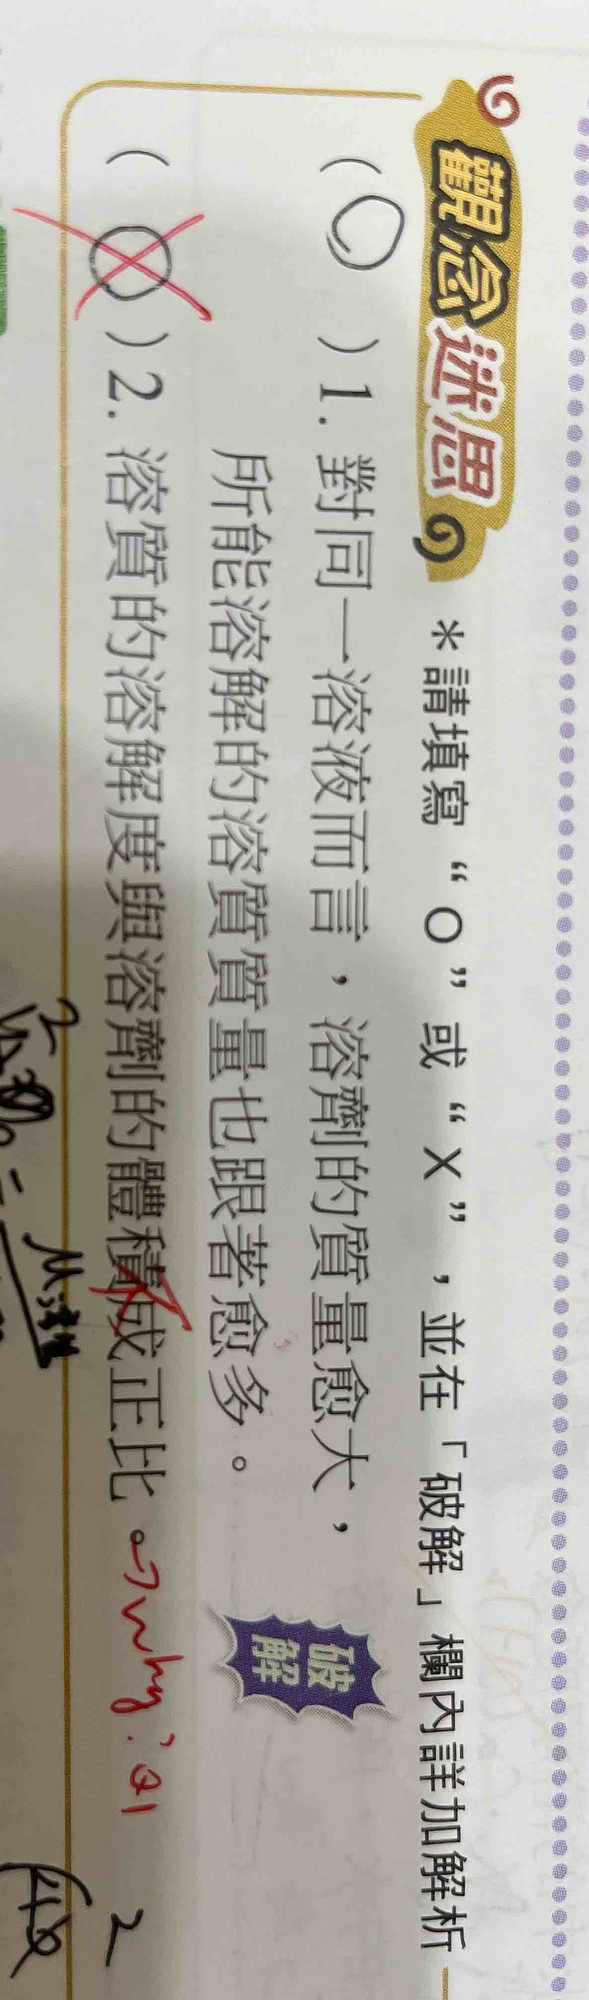 觀念迷思 *請填寫“O”或“X”，並在「破解」欄內詳加解析
( O )1. 對同一溶液而言，溶劑的質量愈大，
所能溶解的溶質質量也跟著愈多。
破解
( O )2. 溶質的溶解度與溶劑的體積成正比。→why?Q1
2
2